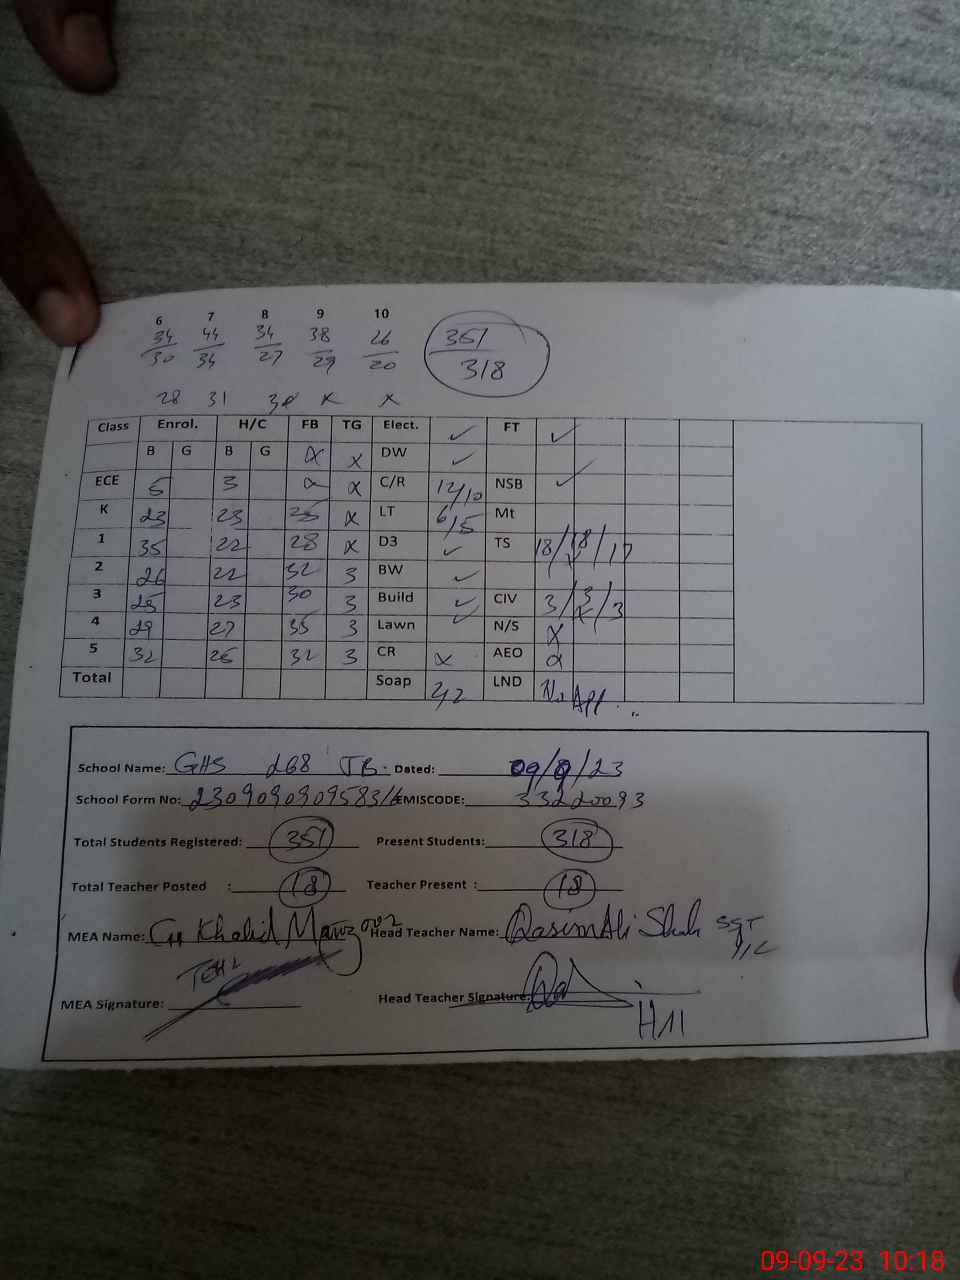 6 7 8 9 10
34/30 44/34 34/27 38/29 26/20 351/318
28 31 30 x x
Class Enrol. H/C FB TG Elect. ✓ FT ✓
B G B G x x DW ✓
ECE 5 3 x x C/R 12/10 NSB ✓
K 23 23 25 x LT 6/5 Mt
1 35 22 28 x D3 ✓ TS 18/18/17
2 26 22 32 3 BW ✓
3 25 23 30 3 Build ✓ CIV 3/3/3
4 29 27 35 3 Lawn ✓ N/S x
5 32 26 32 3 CR x AEO x
Total Soap 2/2 LND No App.
School Name: GHS 268 JB. Dated: 09/9/23
School Form No: EMISCODE: 33220093
Total Students Registered: 351 Present Students: 318
Total Teacher Posted : 18 Teacher Present : 18
MEA Name: Khalid Head Teacher Name: Qasim Ali Shah SST
I/C
MEA Signature: Head Teacher Signature:
H/M
09-09-23 10:18